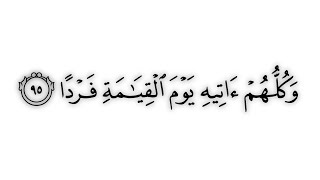 وَكُلُّهُمْ ءَاتِيهِ يَوْمَ ٱلْقِيَـٰمَةِ فَرْدًا ٩٥